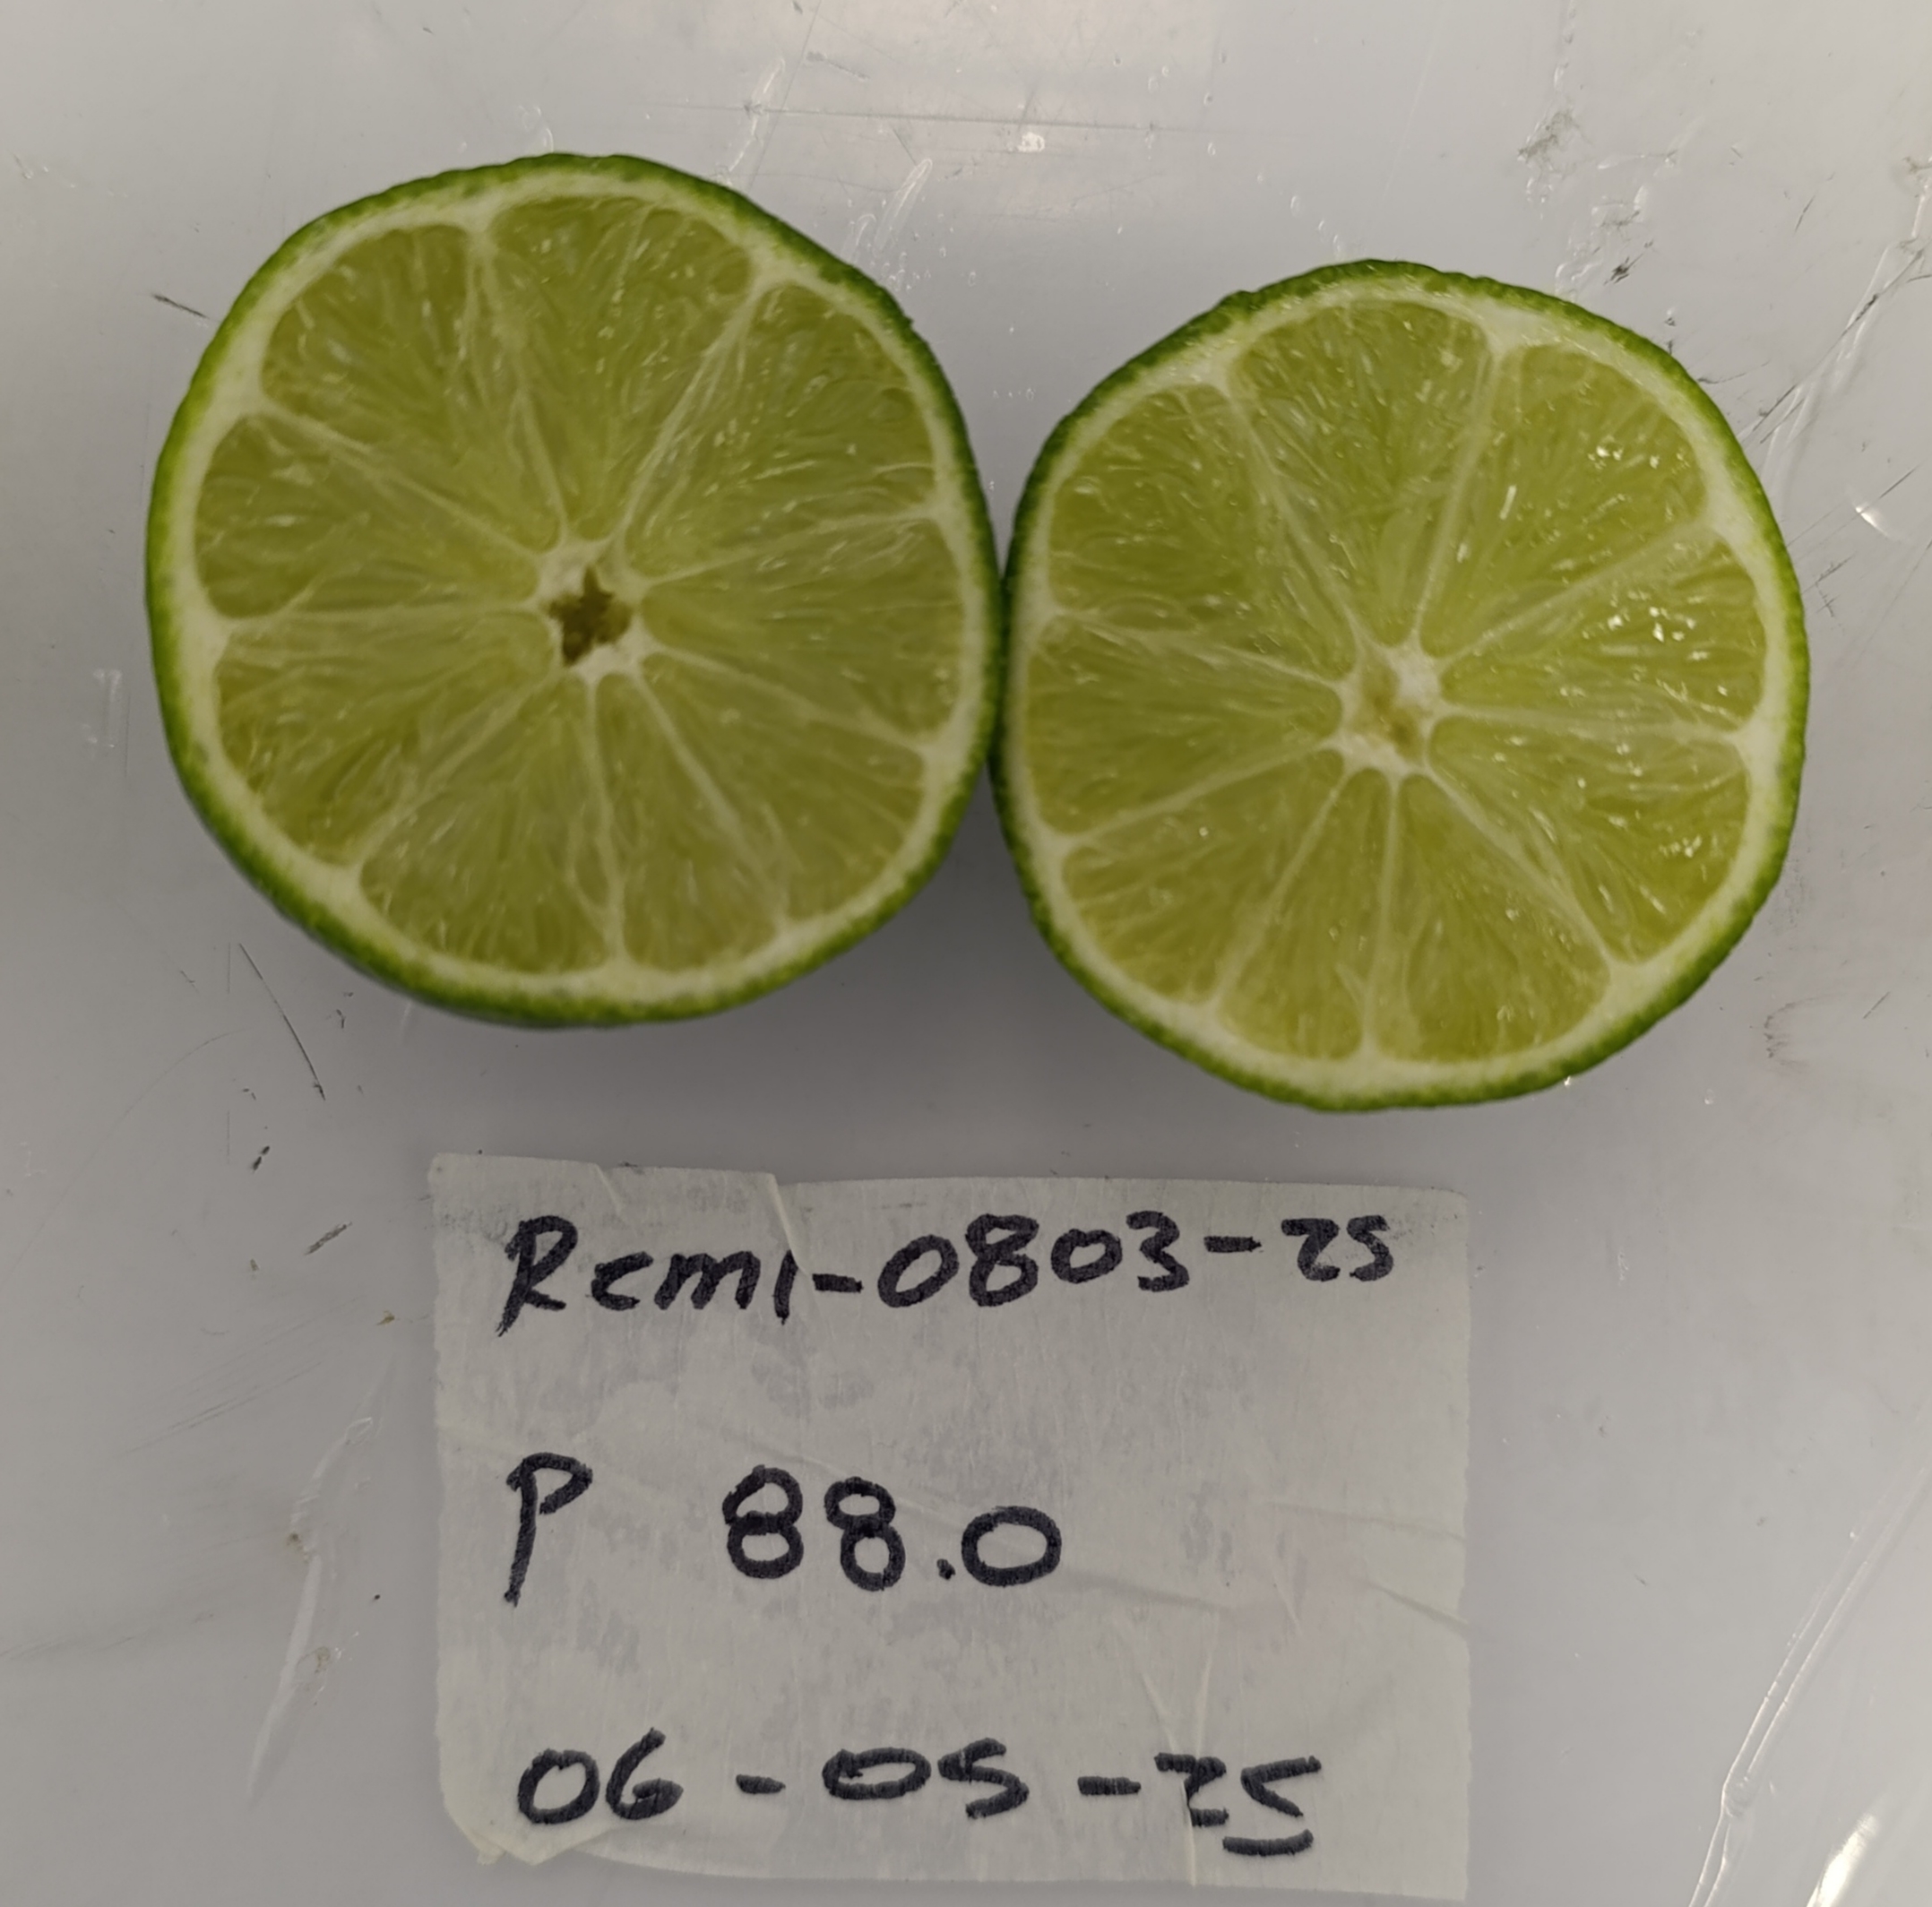 Rcmi-0803-25
P 88.0
06-05-25